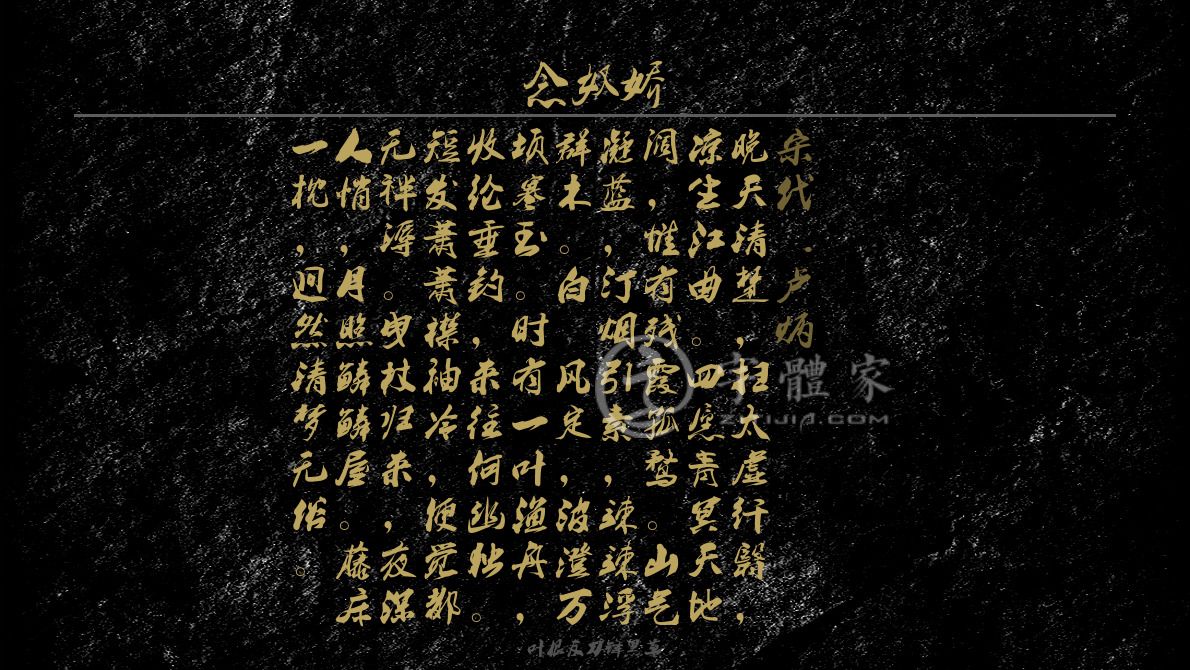 念奴娇
宋代·卢炳
晚天清楚，扫太虚纤翳，
凉生江曲。四愿青冥天地
阔，惟有残霞孤鹜。山气
凝蓝，汀烟引素，竦竦浮
群木。白，风定，波澄万
顷寒玉。时有一叶渔舟，
收纶垂钓，来往何幽独。
短发萧萧襟袖冷，便觉都
无袢溽。曳杖归来，夜深
人悄，月照鳞鳞屋。藤床
一枕，迥然清梦无俗。
字體家
ZITIJIA.COM
叶根友刀锋黑草